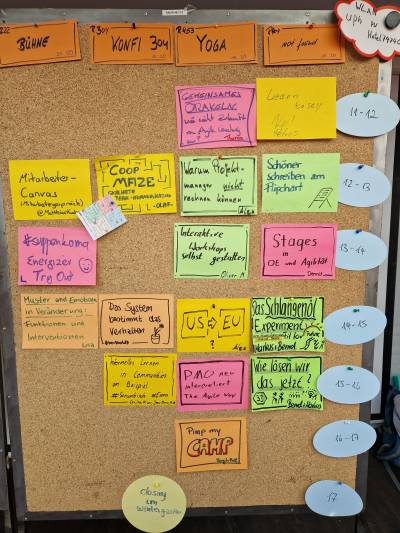 BÜHNE
KONFI 304
YOGA
not found
WLAN
GEMEINSAMES
ORAKELN
Learn
to say
No!
11-12
Mitarbeiter-
Canvas
(Mitarbeitergespräch)
COOP
MAZE
- OLAF
Warum Projekt-
manager nicht
rechnen können
Schöner
schreiben am
Flipchart
12-13
Energizer
Try Out
Interaktive
Workshops
selbst gestalten
Oliver M.
Stages
in
OE und Agilität
13-14
Muster und Emotionen
in Veränderung!
Funktionen und
Interventionen
Lisa
Das System
bestimmt das
Verhalten
US → EU
?
Das Schlangenöl
Experiment
14-15
Lernen
in Communities
am Beispiel
PMO neu
interpretiert
The Agile Way
Wie lösen wir
das jetzt?
15-16
Pimp my
CAMP
16-17
Closing
im
Wintergarten
17